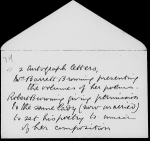 2 Autograph letters,
Mrs Barrett Browning presenting
the volumes of her poems.
Robert Browning giving permission
to the same lady (now married)
to set his poetry to music
of her composition